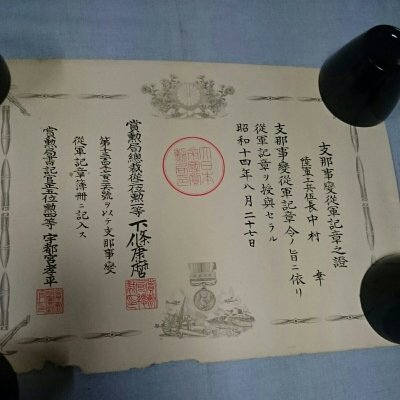 支那事變從軍記章之證
陸軍上等兵中村 幸
支那事變從軍記章令ノ旨ニ依リ
從軍記章ヲ授與セラル
昭和十四年八月二十七日
大日本
賞勲局總裁從四位勲二等下條康麿
號ヲ以テ支那事變
從軍記章簿册ニ記入ス
賞勲局書記官正五位勲四等宇都宮孝平